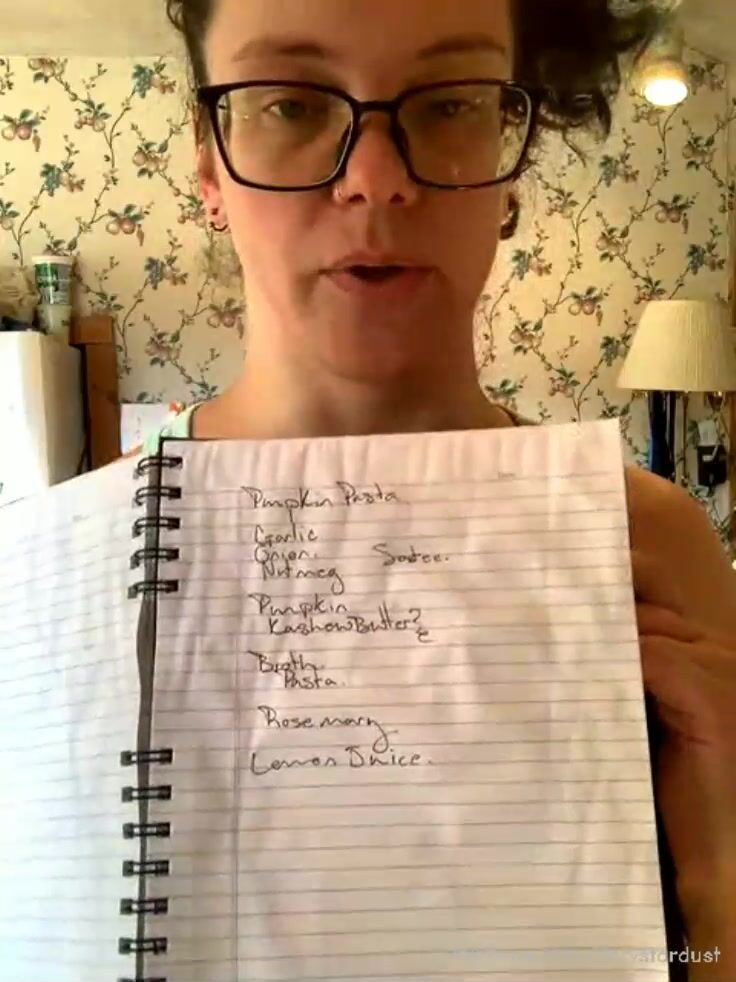 Pumpkin Pasta
Garlic
Onion. Sautee.
Nutmeg
Pumpkin
Kashew Butter?
Broth
Pasta.
Rosemary
Lemon Juice.